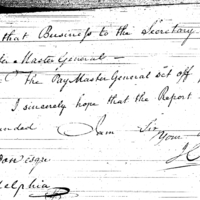 that Business to the Secretary
Master General —
The Pay Master General set off
I sincerely hope that the Report
I am Sir
Your
esqr
delphia